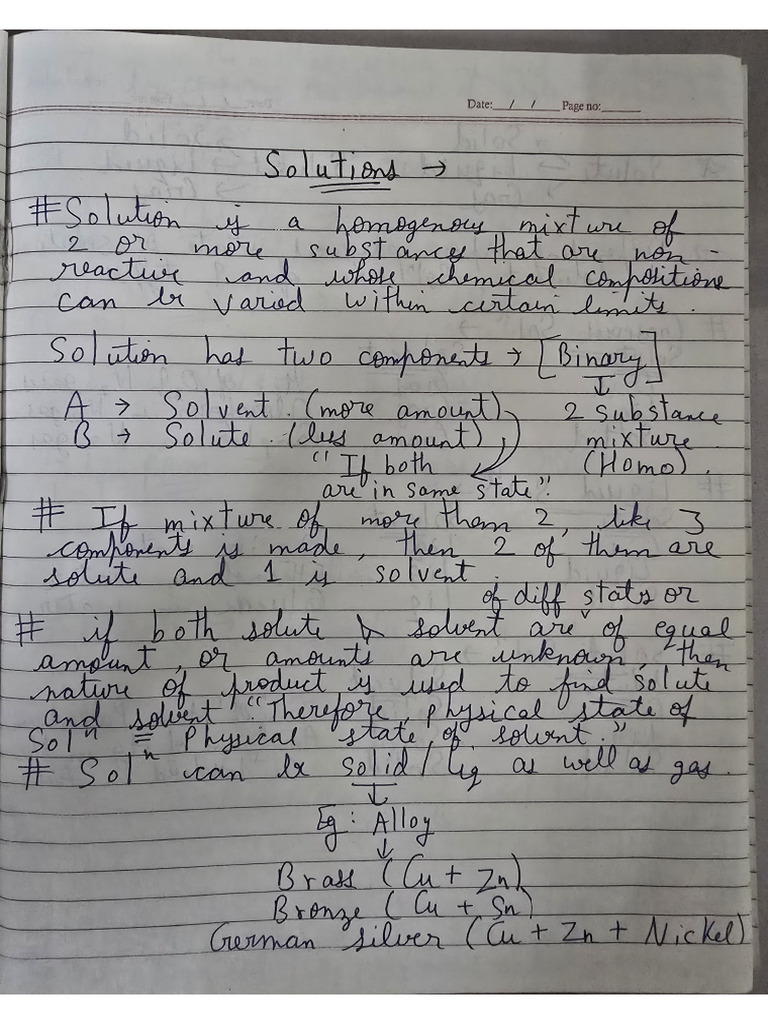 Date: / / Page no:
Solutions →
# Solution is a homogenous mixture of
2 or more substances that are non-
reactive and whose chemical compositione
can be varied within certain limits.
Solution has two components → [Binary]
A → Solvent. (more amount)
B → Solute. (less amount)
"If both
are in same state".
↓
2 substance
mixture
(Homo).
# If mixture of more them 2, like 3
components is made, then 2 of them are
solute and 1 is solvent.
of diff stats or
# if both solute & solvent are of equal
amount, or amounts are unknown, then
nature of product is used to find solute
and solvent "Therefore, physical state of
Solⁿ = Physical state of solvent."
# Solⁿ can be solid/liq as well as gas.
↓
Eg: Alloy
↓
Brass (Cu + Zn)
Bronze (Cu + Sn)
German silver (Cu + Zn + Nickel)